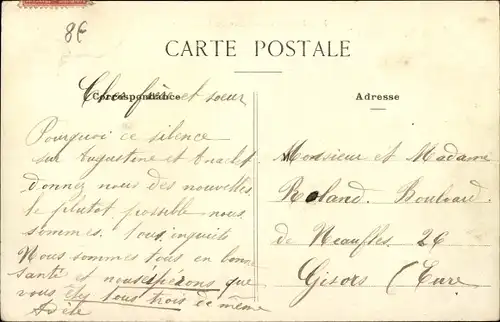 8€
CARTE POSTALE
Correspondance
Cher frère et soeur
Pourquoi ce silence
sur Augustine et Anaclet
donnez nous des nouvelles
le plutot possible nous
sommes tous inquite
Nous sommes tous en bonne
santé et nous espérons que
vous êtes tous trois de même
Adèle
Adresse
Monsieur et Madame
Roland. Boulvard
de Neaufles 26
Gisors (Eure